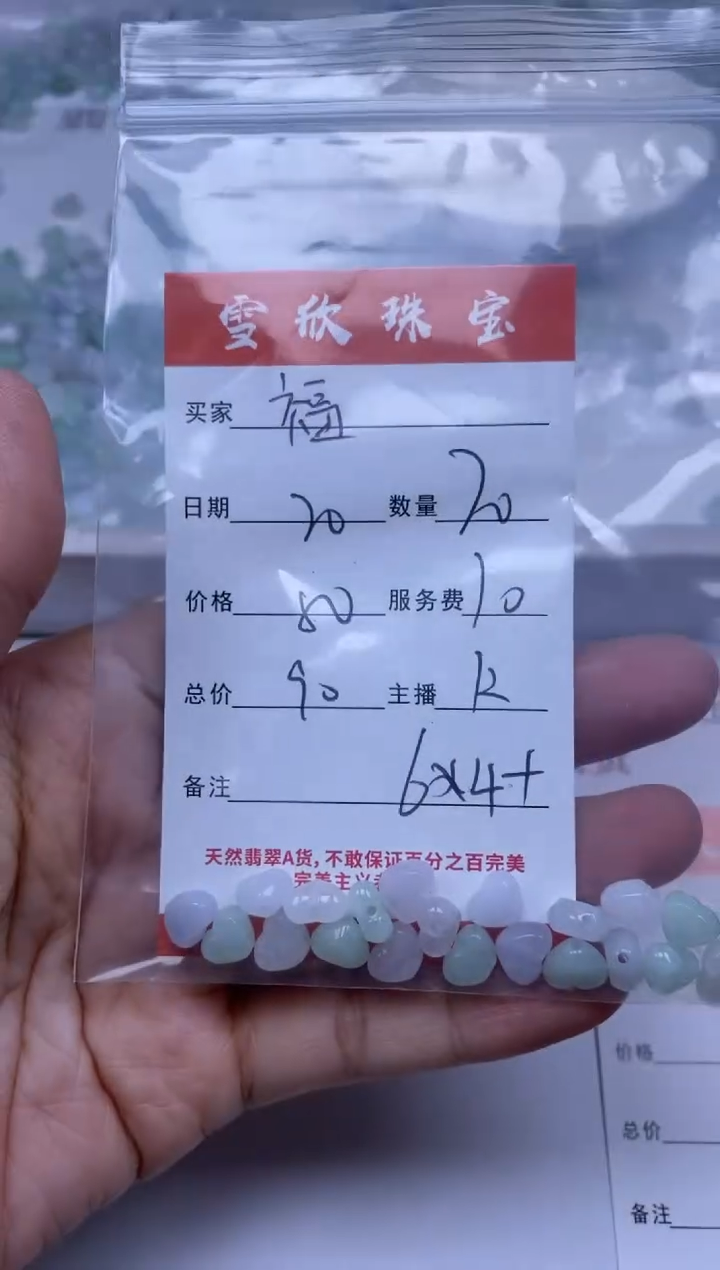 雪欣珠宝
买家 福
日期 20 数量 20
价格 80 服务费 10
总价 90 主播 k
备注 6x4+
天然翡翠A货,不敢保证百分之百完美
完美主义者
价格
总价
备注